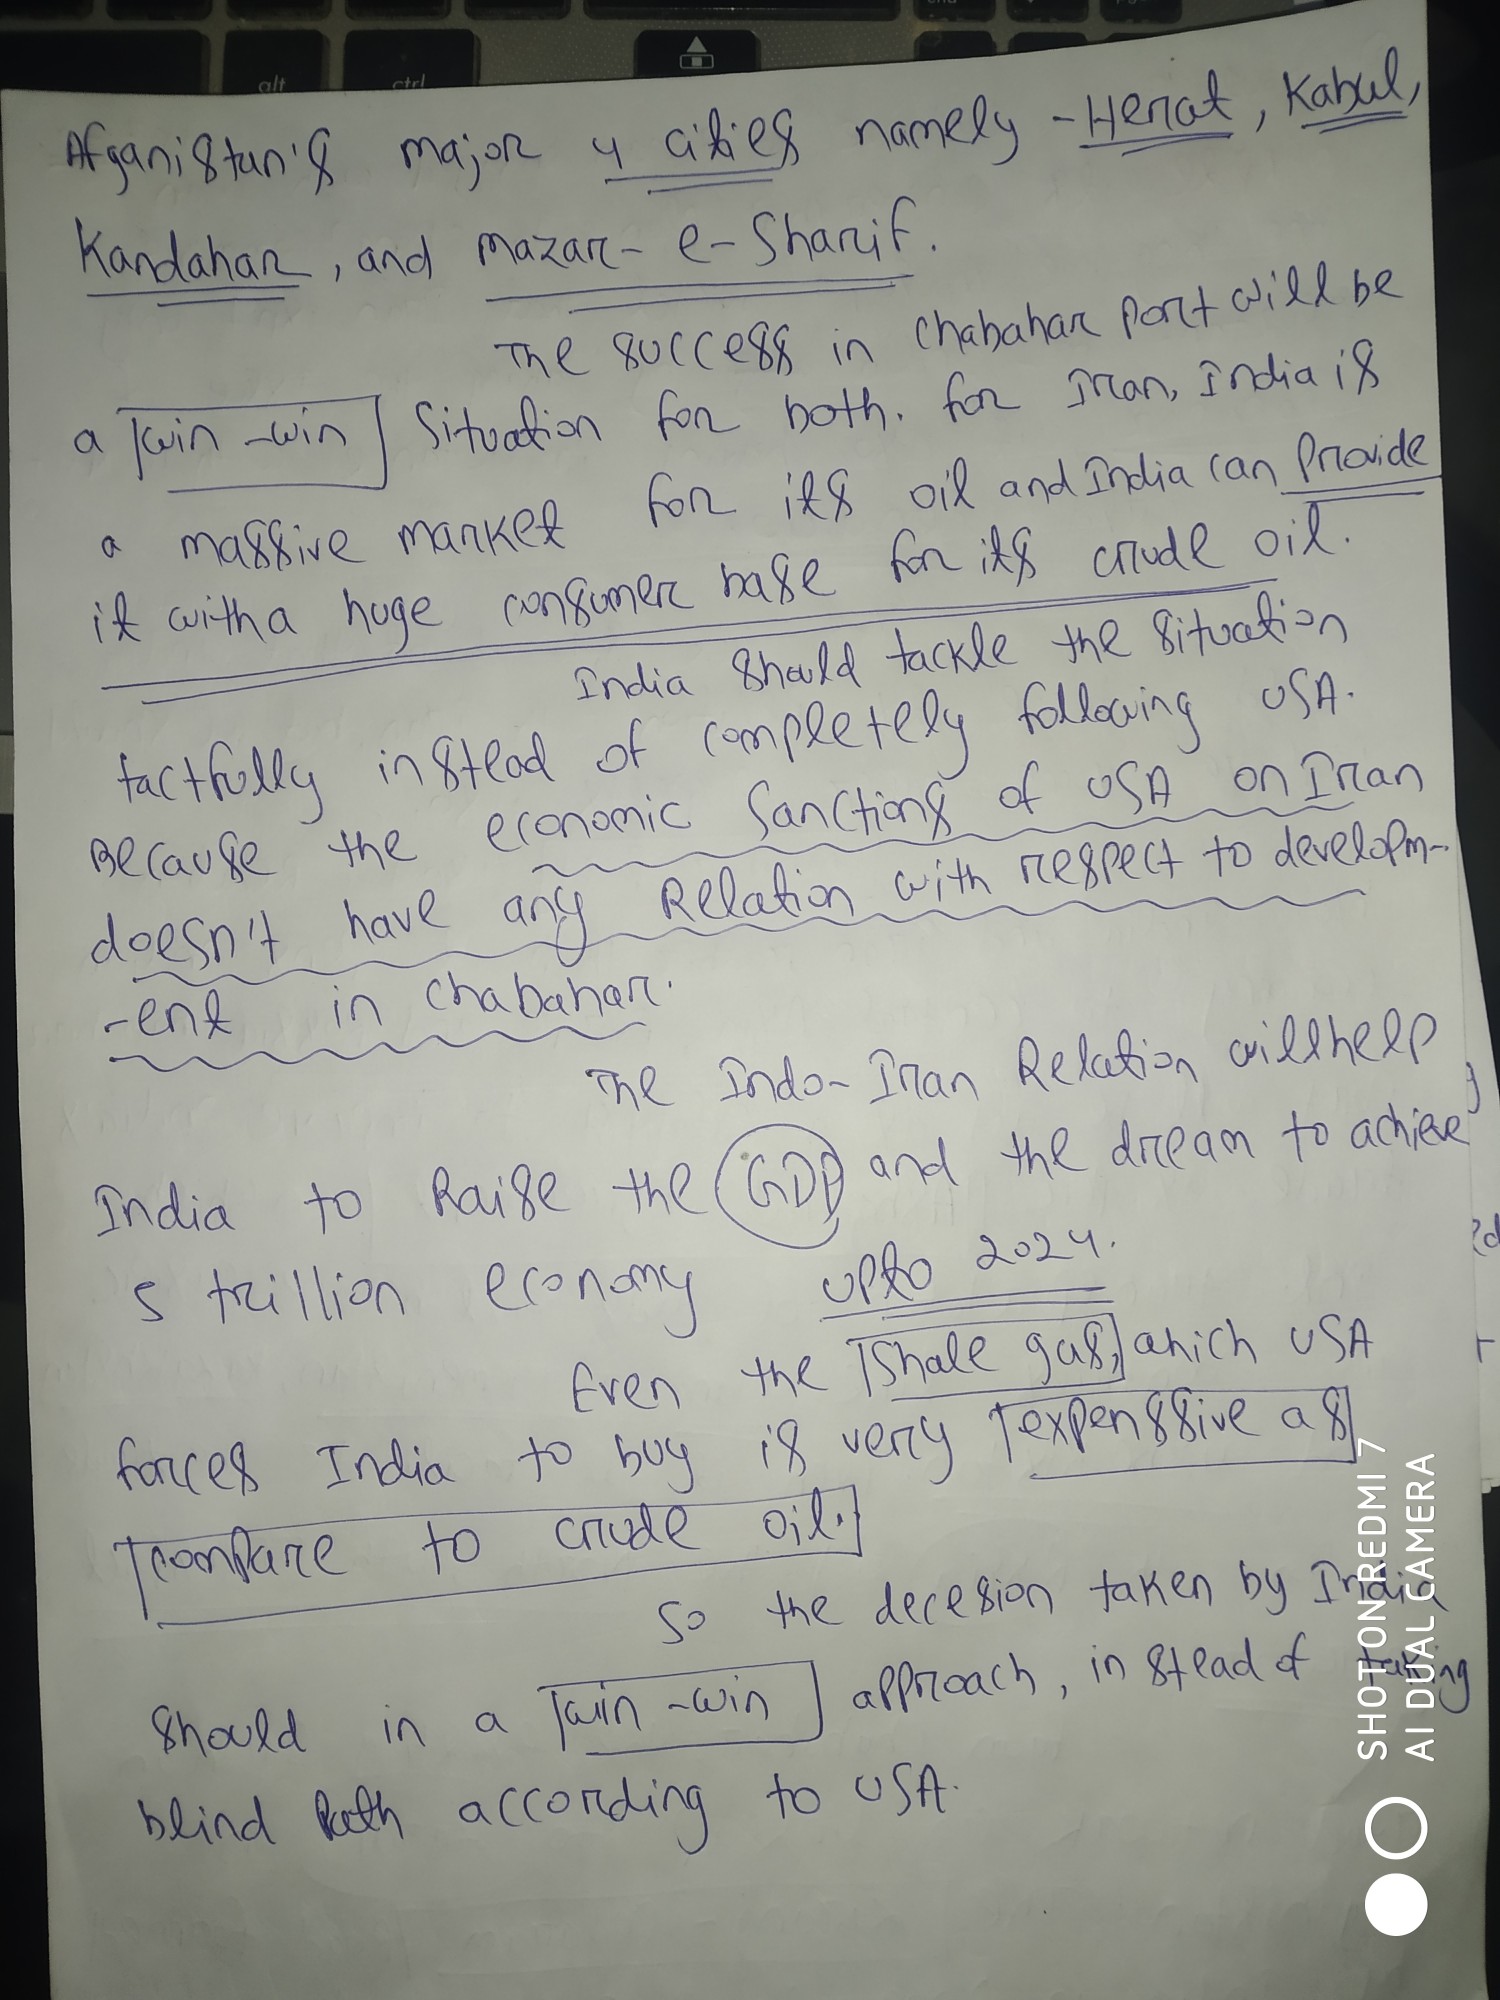 alt
ctrl
Afganistan's major 4 cities namely - Herat, Kabul,
Kandahar, and Mazar-e-Sharif.
The success in Chabahar Port will be
a win-win situation for both. for Iran, India is
a massive market for its oil and India can Provide
it with a huge consumer base for its crude oil.
India should tackle the situation
tactfully instead of completely following USA.
Because the economic Sanctions of USA on Iran
doesn't have any Relation with respect to developm-
-ent in Chabahar.
The Indo-Iran Relation will help
India to Raise the GDP and the dream to achieve
5 trillion economy upto 2024.
Even the Shale gas, which USA
forces India to buy is very expenssive as
compare to crude oil.
So the decesion taken by India
should in a win-win approach, instead of taking
blind Path according to USA.
SHOT ON REDMI 7
AI DUAL CAMERA